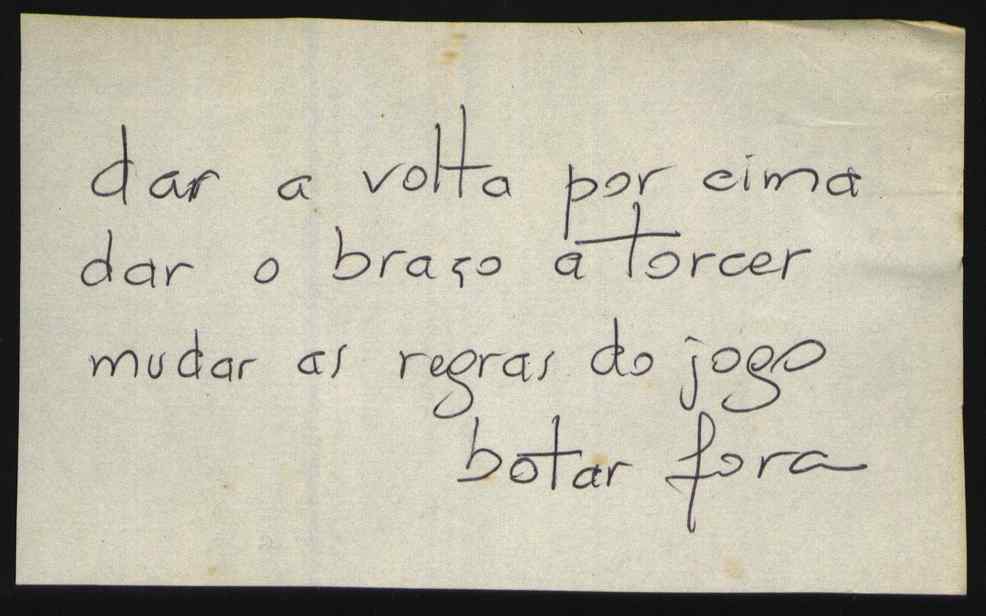 dar a volta por cima
dar o braço a torcer
mudar as regras do jogo
botar fora